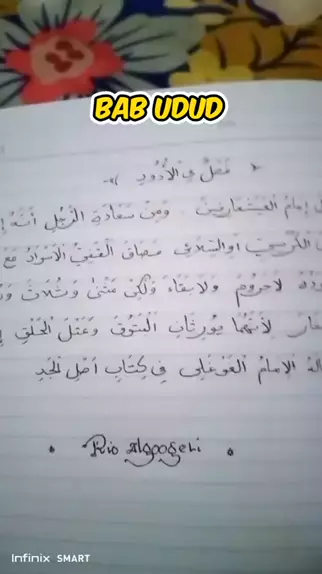 BAB UDUD
فَصْلٌ فِي الْأُدُودِ
إِمَامُ الْعِيشْفَارِيِّيْنَ . وَمِنْ سَعَادَةِ الرَّجُلِ أَنَّهُ
الْكُرْسِيِّ أَوِالتِّلَادِي مَصَاقَ الْقَفِيِّ الْأَسْوَادُ مَعَ
لَاحَرُومَ وَلَابَقَاءَ وَلَكِنْ مَثْنَى وَثُلَاثَ
لِأَنَّهُمَا يُورِثَانِ الْبَتُوقَ وَعَتَلَ الْحَلْقِ
الإِمَامُ الْغَوْغَلِى فِي كِتَابِ أَصْلِ الْجَدِ
Rio Algooseli
Infinix SMART